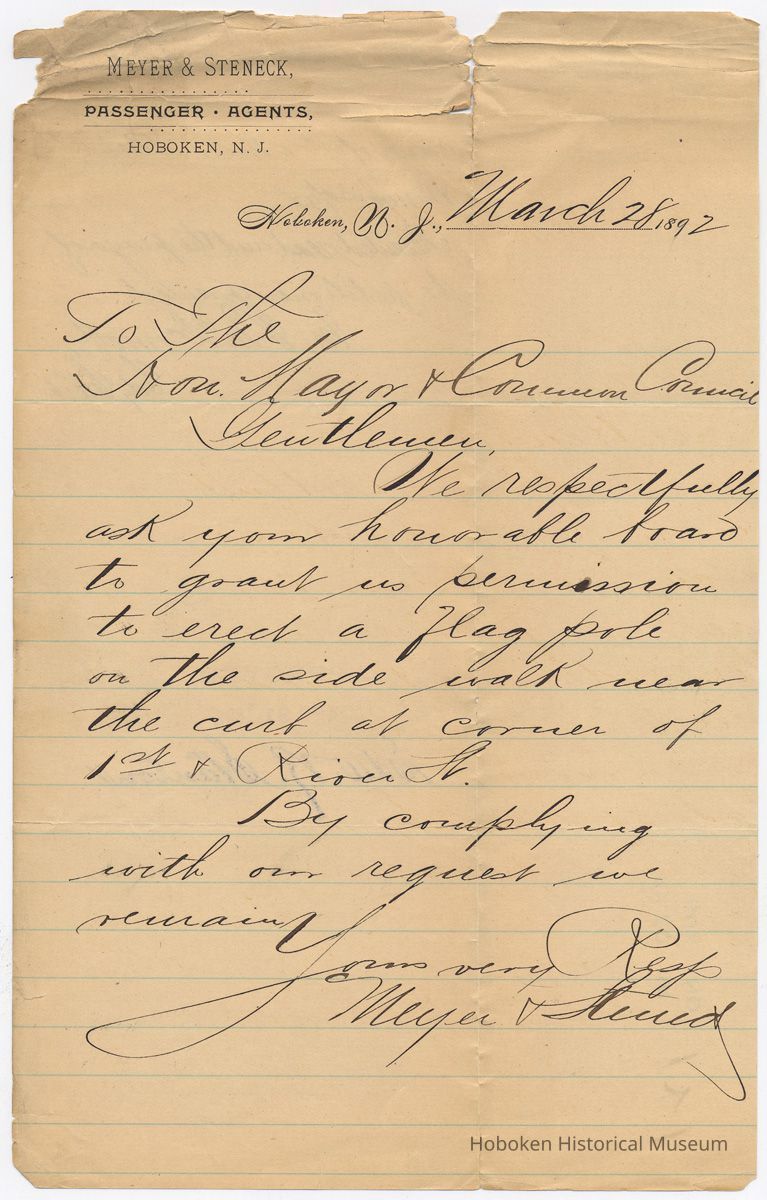 MEYER & STENECK,
PASSENGER · AGENTS,
HOBOKEN, N. J.
Hoboken, N. J., March 28 1892
To The
Hon. Mayor & Common Council
Gentlemen,
We respectfully
ask your honorable board
to grant us permission
to erect a flag pole
on the side walk near
the curb at corner of
1st & River St.
By complying
with our request we
remain
Yours very Resp
Meyer & Steneck
Hoboken Historical Museum